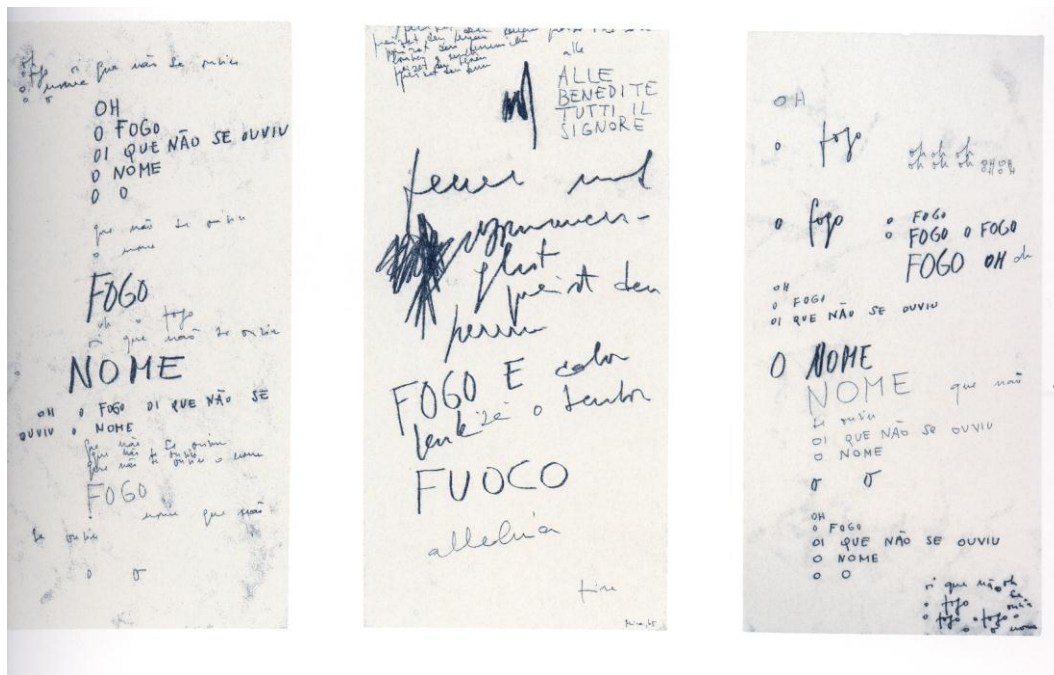 oi que não se ouviu
nome
o o
OH
O FOGO
OI QUE NÃO SE OUVIU
O NOME
O O
que não se ouviu
o nome
FOGO
oh o fogo
oi que não se ouviu
NOME
OH O FOGO OI QUE NÃO SE
OUVIU O NOME
que não se ouviu
que não se ouviu
que não se ouviu o nome
FOGO
nome que não
se ouviu
o o
alle
ALLE
BENEDITE
TUTTI IL
SIGNORE
feuer und
preist den
FOGO E calor
o senhor
FUOCO
alleluia
fire
OH
o fogo
oh oh oh
oh oh oh OH OH
o fogo
o FOGO
o FOGO O FOGO
FOGO OH oh
OH
O FOGO
OI QUE NÃO SE OUVIU
O NOME
NOME que não
se ouviu
OI QUE NÃO SE OUVIU
O NOME
o o
OH
O FOGO
OI QUE NÃO SE OUVIU
O NOME
O O
oi que não oh
o fogo se
ouviu
o fogo o fogo o
o o nome